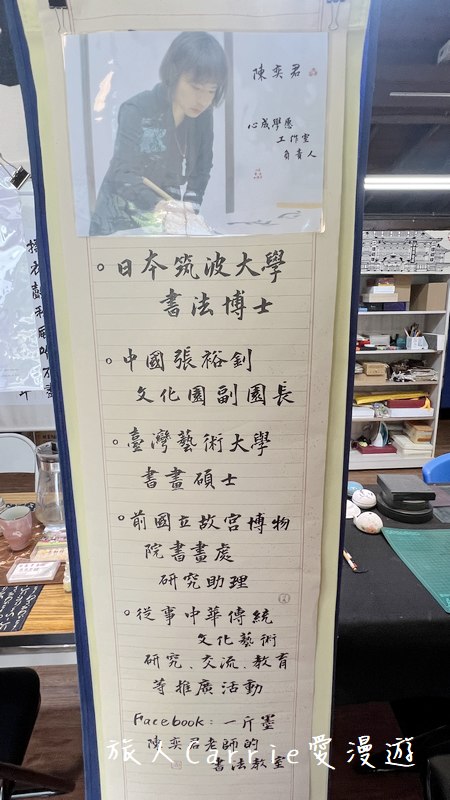 陳奕君
心成學愿
工作室
負責人
日本筑波大學
書法博士
中國張裕釗
文化園副園長
臺灣藝術大學
書畫碩士
前國立故宮博物
院書畫處
研究助理
從事中華傳統
文化藝術
研究、交流、教育
等推廣活動
Facebook：一斤墨
陳奕君老師的
書法教室
旅人Carrie愛漫遊